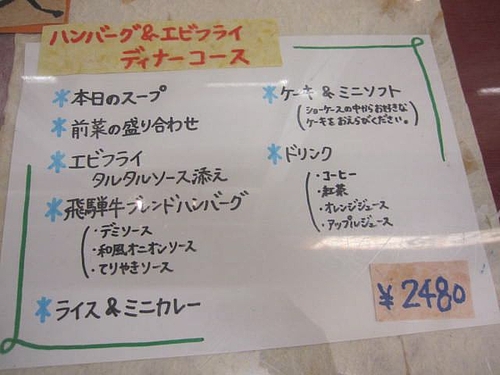 ハンバーグ&エビフライ
ディナーコース
*本日のスープ
*前菜の盛り合わせ
*エビフライ
タルタルソース添え
*飛騨牛ブレンドハンバーグ
・デミソース
・和風オニオンソース
・てりやきソース
*ライス&ミニカレー
*ケーキ&ミニソフト
(ショーケースの中からお好きな
ケーキをおえらびください。)
*ドリンク
・コーヒー
・紅茶
・オレンジジュース
・アップルジュース
¥2480